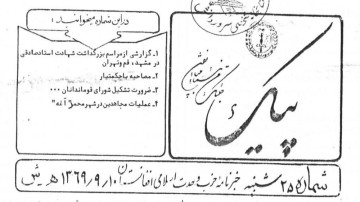 در این شماره میخوانید :
۱- گزارشی از مراسم بزرگداشت شهادت استاد صادقی
در مشهد، قم و تهران
۲- مصاحبه با حکمتیار
۳- ضرورت تشکیل شورای قوماندانان ۰۰۰
۴- عملیات مجاهدین در شهر
پیک
شماره ۲۵ شنبه خبرنامه حزب وحدت اسلامی افغانستان ۱۳۶۹/۹/۱۰ هـ ش